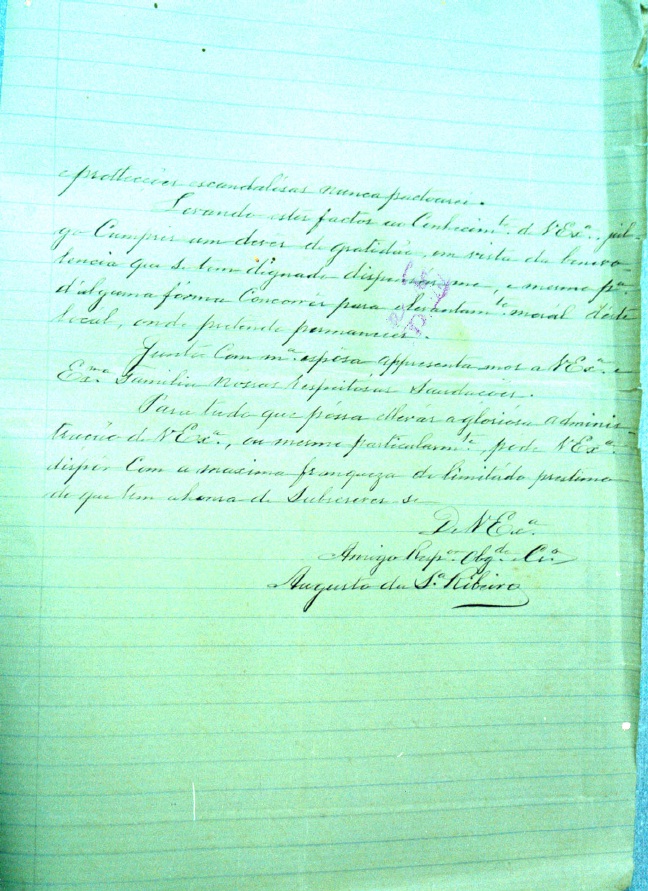 e protecções escandalósas nunca pactuarei.
Levando estes factos ao Conhecimto. de V Exa., jul-
go Cumprir um devêr de gratidão, em vista da benevo-
lencia que se tem dignado dispensar-me, e mesmo pa.
d'alguma fórma Concorrêr para o levantamto. moral d'este
local, onde pretendo permanecer.
Junto Com ma. espôsa, appresenta mos a V Exa. e
Exma. Familia Nossas respeitosas Saudações.
Para tudo que póssa elevár a gloriósa adminis-
tração de V Exa., ou mesmo particularmte., póde V Exa.
dispôr Com a maxima franqueza do limitádo prestimo
do que tem a honra de Subscrever se
De V Exa.
Amigo Respor. Obgdo. Cro.
Augusto da Sa. Ribeiro